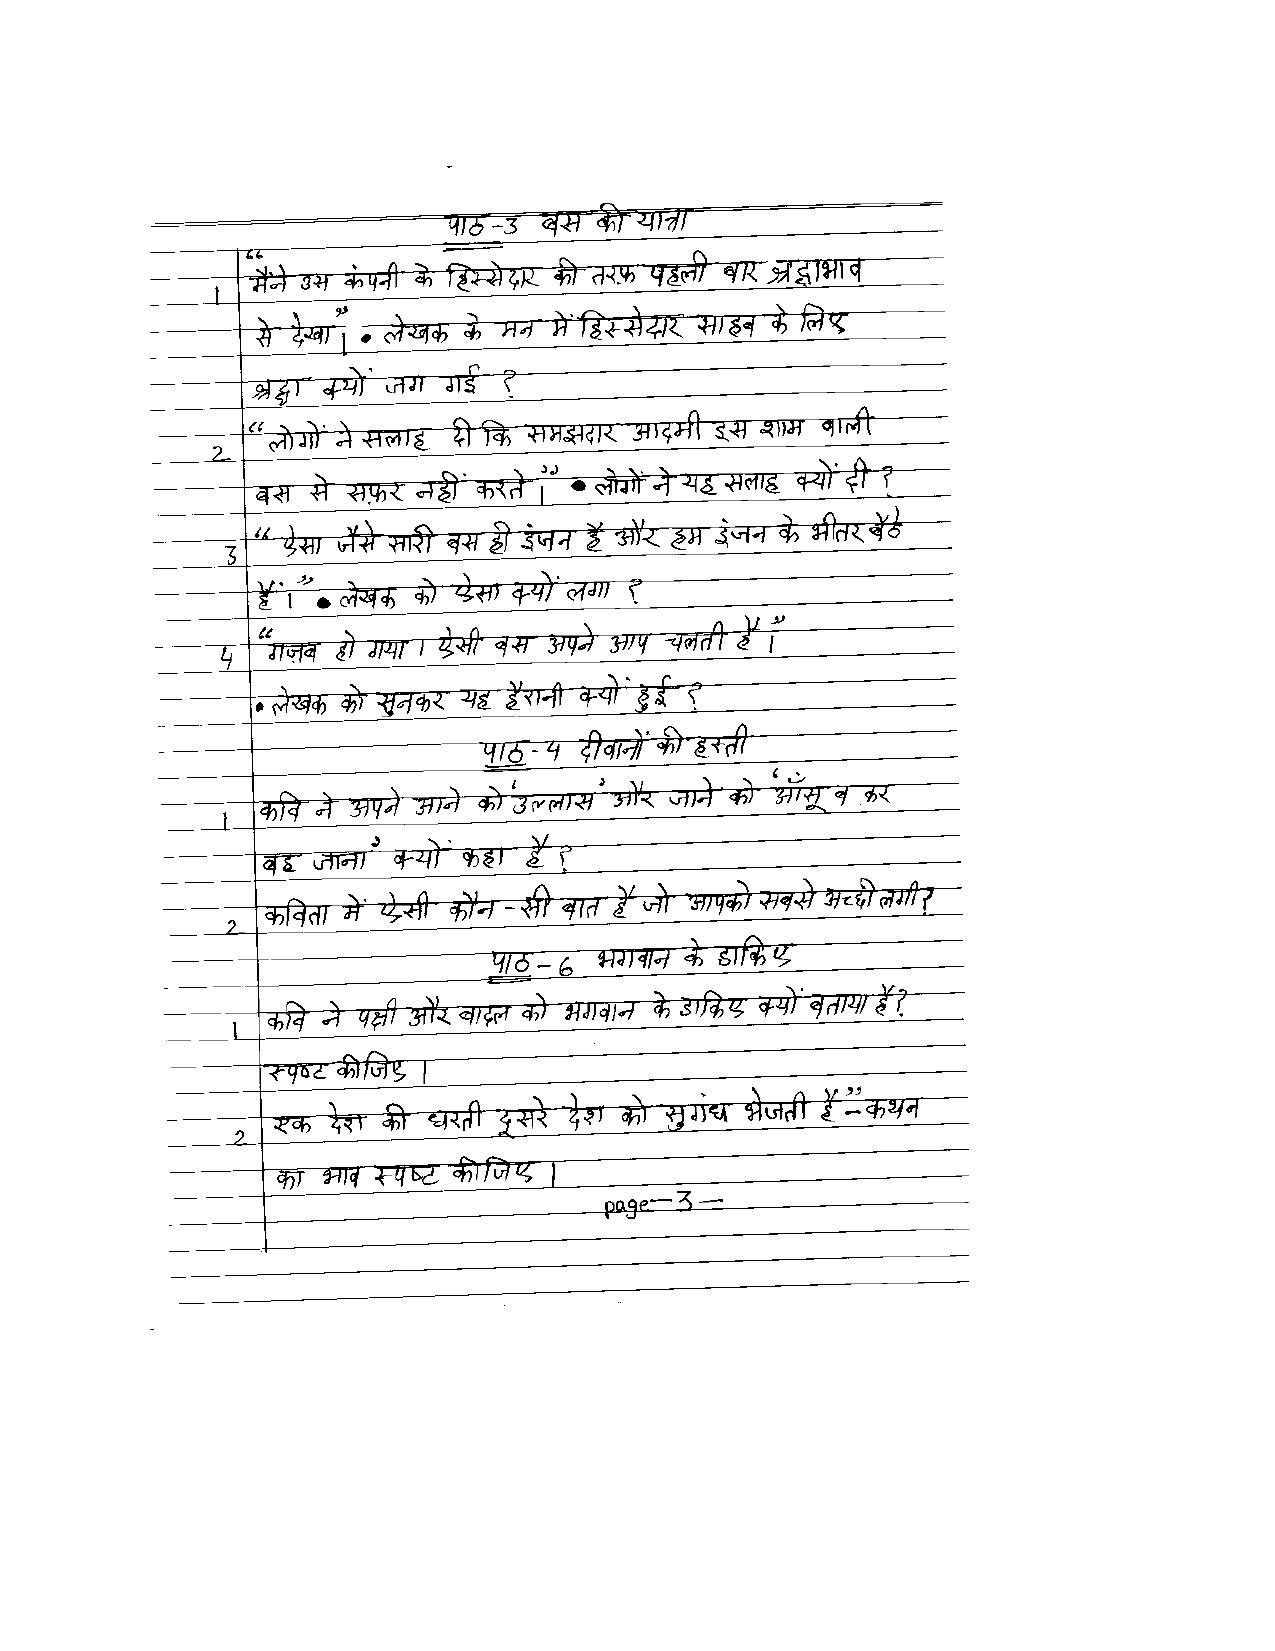 पाठ-3 बस की यात्रा
“
1 मैंने उस कंपनी के हिस्सेदार की तरफ़ पहली बार श्रद्धाभाव
से देखा।” • लेखक के मन में हिस्सेदार साहब के लिए
श्रद्धा क्यों जग गई ?
2 “लोगों ने सलाह दी कि समझदार आदमी इस शाम वाली
बस से सफ़र नहीं करते।” • लोगों ने यह सलाह क्यों दी ?
3 “ऐसा जैसे सारी बस ही इंजन है और हम इंजन के भीतर बैठे
हैं।” • लेखक को ऐसा क्यों लगा ?
4 “गज़ब हो गया। ऐसी बस अपने आप चलती है।”
• लेखक को सुनकर यह हैरानी क्यों हुई ?
पाठ-4 दीवानों की हस्ती
1 कवि ने अपने आने को ‘उल्लास’ और जाने को ‘आँसू ब कर
बह जाना’ क्यों कहा है ?
2 कविता में ऐसी कौन-सी बात है जो आपको सबसे अच्छी लगी?
पाठ-6 भगवान के डाकिए
1 कवि ने पक्षी और बादल को भगवान के डाकिए क्यों बताया है?
स्पष्ट कीजिए।
2 एक देश की धरती दूसरे देश को सुगंध भेजती है”-कथन
का भाव स्पष्ट कीजिए।
page-3-